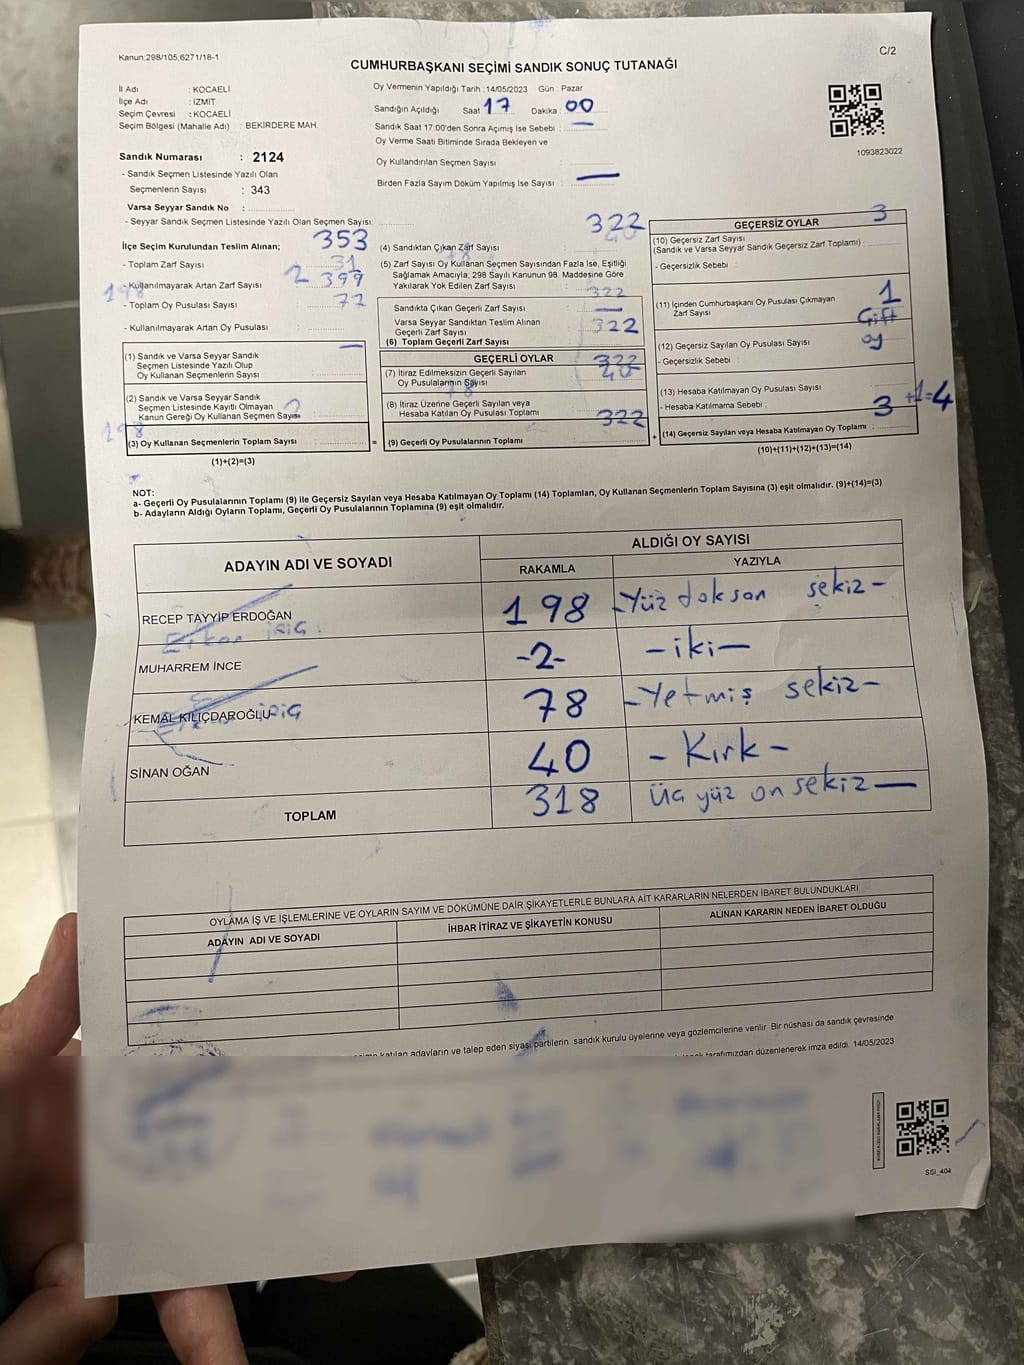 Kanun;298/105;6271/18-1
C/2
CUMHURBAŞKANI SEÇİMİ SANDIK SONUÇ TUTANAĞI
İl Adı : KOCAELİ
İlçe Adı : İZMİT
Seçim Çevresi : KOCAELİ
Seçim Bölgesi (Mahalle Adı) : BEKİRDERE MAH.
Oy Vermenin Yapıldığı Tarih :14/05/2023 Gün : Pazar
Sandığın Açıldığı Saat 17 Dakika : 00
Sandık Saat 17:00'den Sonra Açımış İse Sebebi : —
Oy Verme Saati Bitiminde Sırada Bekleyen ve
Oy Kullandırılan Seçmen Sayısı :
Birden Fazla Sayım Döküm Yapılmış İse Sayısı : —
1093823022
Sandık Numarası : 2124
- Sandık Seçmen Listesinde Yazılı Olan
Seçmenlerin Sayısı : 343
Varsa Seyyar Sandık No :
- Seyyar Sandık Seçmen Listesinde Yazılı Olan Seçmen Sayısı:
İlçe Seçim Kurulundan Teslim Alınan; 353
- Toplam Zarf Sayısı 31
- Kullanılmayarak Artan Zarf Sayısı 399
- Toplam Oy Pusulası Sayısı 77
- Kullanılmayarak Artan Oy Pusulası
(1) Sandık ve Varsa Seyyar Sandık
Seçmen Listesinde Yazılı Olup
Oy Kullanan Seçmenlerin Sayısı —
(2) Sandık ve Varsa Seyyar Sandık
Seçmen Listesinde Kayıtlı Olmayan
Kanun Gereği Oy Kullanan Seçmen Sayısı
(3) Oy Kullanan Seçmenlerin Toplam Sayısı =
(1)+(2)=(3)
322
(4) Sandıktan Çıkan Zarf Sayısı
(5) Zarf Sayısı Oy Kullanan Seçmen Sayısından Fazla İse, Eşitliği
Sağlamak Amacıyla; 298 Sayılı Kanunun 98. Maddesine Göre
Yakılarak Yok Edilen Zarf Sayısı
322
Sandıkta Çıkan Geçerli Zarf Sayısı —
Varsa Seyyar Sandıktan Teslim Alınan
Geçerli Zarf Sayısı 322
(6) Toplam Geçerli Zarf Sayısı
GEÇERLİ OYLAR
322
(7) İtiraz Edilmeksizin Geçerli Sayılan
Oy Pusulalarının Sayısı
(8) İtiraz Üzerine Geçerli Sayılan veya
Hesaba Katılan Oy Pusulası Toplamı 322
(9) Geçerli Oy Pusulalarının Toplamı +
GEÇERSİZ OYLAR 3
(10) Geçersiz Zarf Sayısı
(Sandık ve Varsa Seyyar Sandık Geçersiz Zarf Toplamı) :
- Geçersizlik Sebebi :
(11) İçinden Cumhurbaşkanı Oy Pusulası Çıkmayan
Zarf Sayısı 1
Çift
oy
(12) Geçersiz Sayılan Oy Pusulası Sayısı
- Geçersizlik Sebebi :
(13) Hesaba Katılmayan Oy Pusulası Sayısı
- Hesaba Katılmama Sebebi : 3 +1=4
(14) Geçersiz Sayılan veya Hesaba Katılmayan Oy Toplamı :
(10)+(11)+(12)+(13)=(14)
NOT:
a- Geçerli Oy Pusulalarının Toplamı (9) ile Geçersiz Sayılan veya Hesaba Katılmayan Oy Toplamı (14) Toplamları, Oy Kullanan Seçmenlerin Toplam Sayısına (3) eşit olmalıdır. (9)+(14)=(3)
b- Adayların Aldığı Oyların Toplamı, Geçerli Oy Pusulalarının Toplamına (9) eşit olmalıdır.
ADAYIN ADI VE SOYADI
ALDIĞI OY SAYISI
RAKAMLA YAZIYLA
RECEP TAYYİP ERDOĞAN 198 -Yüz doksan sekiz-
MUHARREM İNCE -2- -iki-
KEMAL KILIÇDAROĞLU 78 -Yetmiş sekiz-
SİNAN OĞAN 40 -Kırk-
TOPLAM 318 Üç yüz on sekiz—
OYLAMA İŞ VE İŞLEMLERİNE VE OYLARIN SAYIM VE DÖKÜMÜNE DAİR ŞİKAYETLERLE BUNLARA AİT KARARLARIN NELERDEN İBARET BULUNDUKLARI
ADAYIN ADI VE SOYADI İHBAR İTİRAZ VE ŞİKAYETİN KONUSU ALINAN KARARIN NEDEN İBARET OLDUĞU
katılan adayların ve talep eden siyasi partilerin sandık kurulu üyelerine veya gözlemcilerine verilir. Bir nüshası da sandık çevresinde
tarafımızdan düzenlenerek imza edildi. 14/05/2023
SSI_404